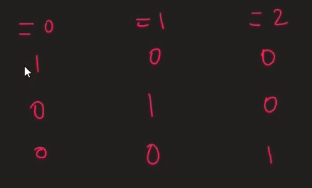 =0 =1 =2
1 0 0
0 1 0
0 0 1